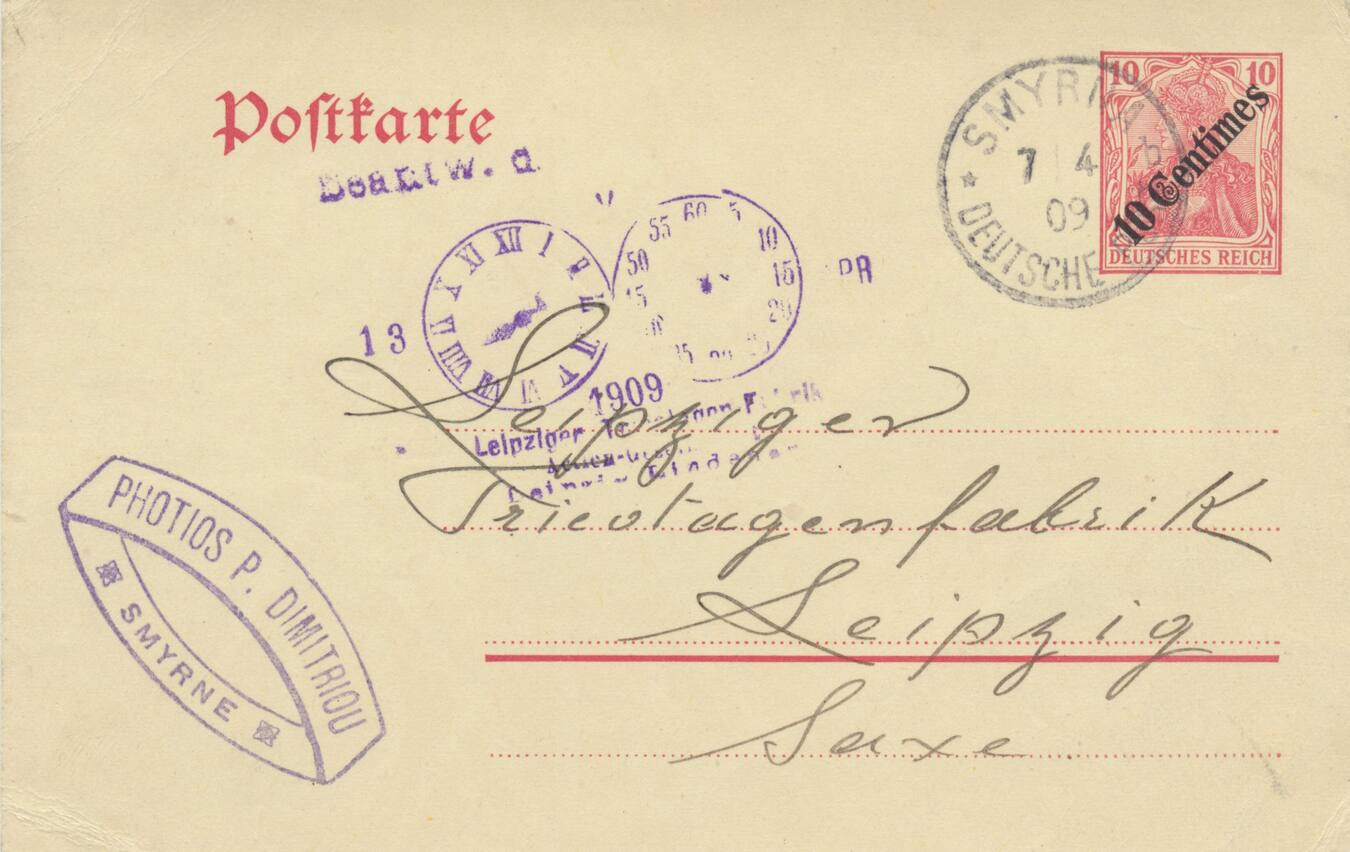 Postkarte
Beantw. d
10 10
10 Centimes
DEUTSCHES REICH
SMYRNA
7 4 b
09
DEUTSCHE
XII I II V VI VII VIII IX X XI
60 5 10 15 20 50 55
13
1909
Leipziger
Leipziger
Tricotagenfabrik
Leipzig
Saxe
PHOTIOS P. DIMITRIOU
SMYRNE